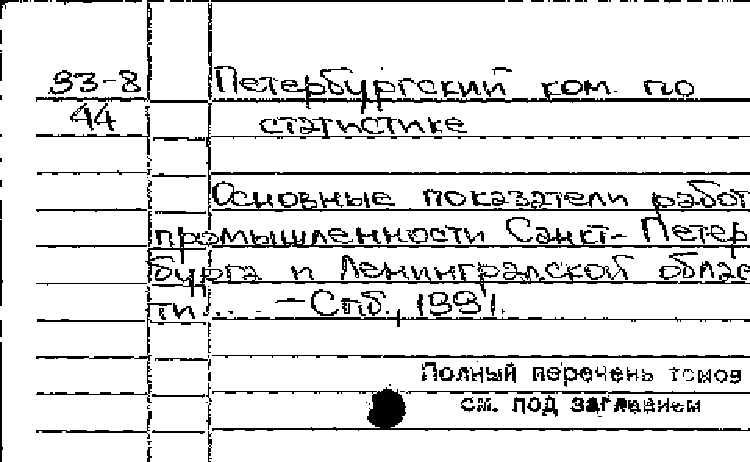 93-8 Петербургский ком. по
44 статистике
Основные показатели работ
промышленности Санкт-Петер
бурга и Ленинградской облас
ти ... - Спб., 1991.
Полный перечень томов
см. под заглавием